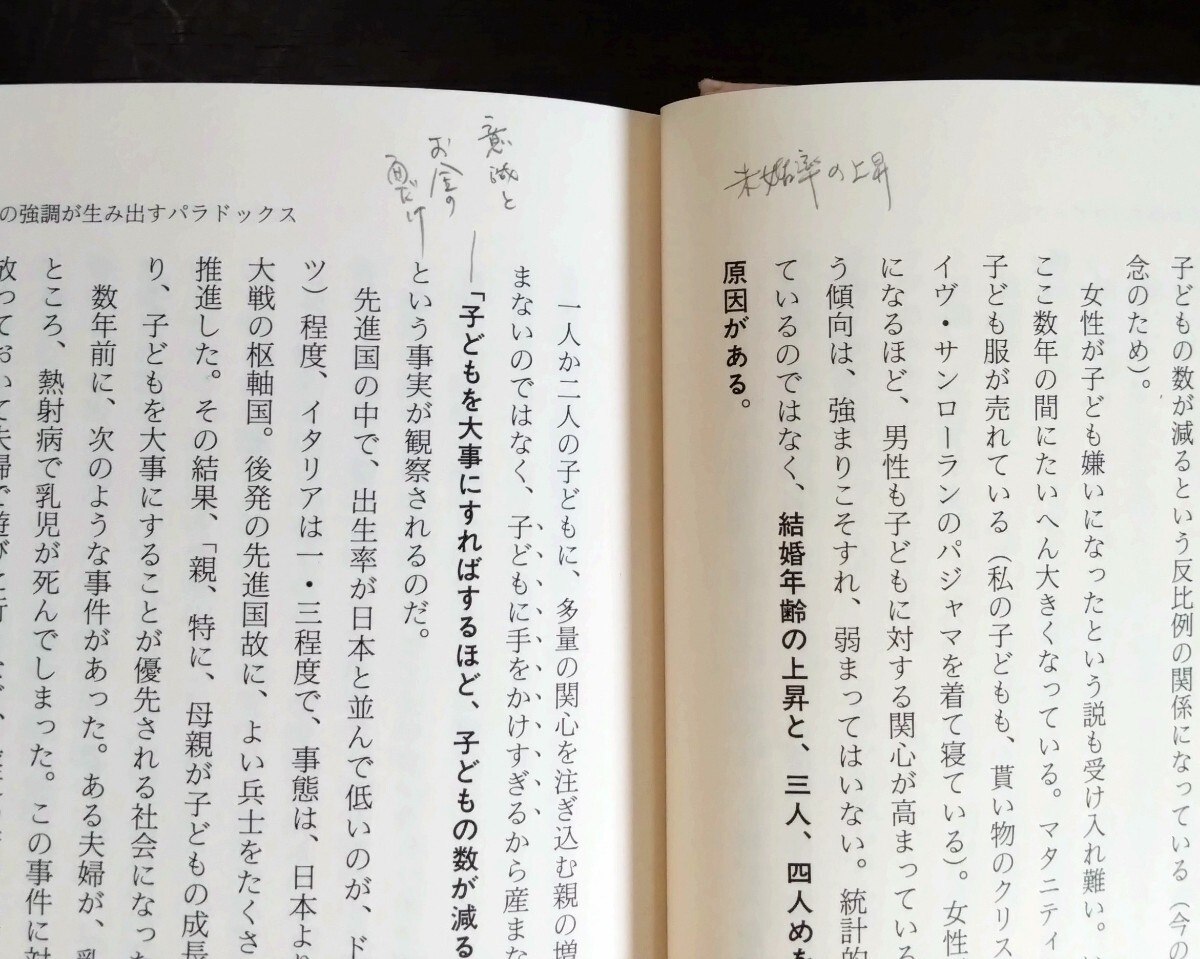 未婚率の上昇
子どもの数が減るという反比例の関係になっている（今の
念のため）。
女性が子ども嫌いになったという説も受け入れ難い。
ここ数年の間にたいへん大きくなっている。マタニティ
子ども服が売れている（私の子どもも、貰い物のクリス
イヴ・サンローランのパジャマを着て寝ている）。女性
になるほど、男性も子どもに対する関心が高まっている
う傾向は、強まりこそすれ、弱まってはいない。統計的
ているのではなく、結婚年齢の上昇と、三人、四人めを
原因がある。
意識と
お金の
面だけ
の強調が生み出すパラドックス
一人か二人の子どもに、多量の関心を注ぎ込む親の増
まないのではなく、子どもに手をかけすぎるから産まな
「子どもを大事にすればするほど、子どもの数が減る
という事実が観察されるのだ。
先進国の中で、出生率が日本と並んで低いのが、ド
ツ）程度、イタリアは一・三程度で、事態は、日本より
大戦の枢軸国。後発の先進国故に、よい兵士をたくさ
推進した。その結果、「親、特に、母親が子どもの成長
り、子どもを大事にすることが優先される社会になった
数年前に、次のような事件があった。ある夫婦が、乳
ところ、熱射病で乳児が死んでしまった。この事件に対
放っておいて夫婦で遊びに行